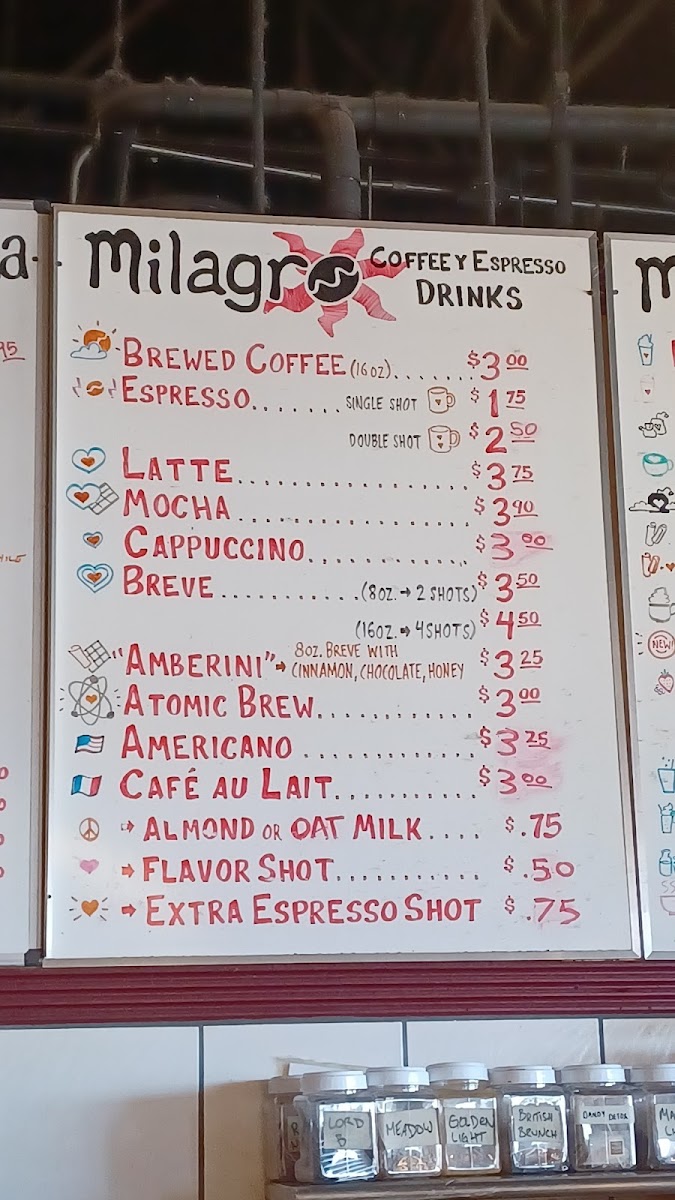 Milagro COFFEE Y ESPRESSO
DRINKS
BREWED COFFEE (16 OZ)....... $3 00
ESPRESSO....... SINGLE SHOT $1 75
DOUBLE SHOT $2 50
LATTE................. $3 75
MOCHA................. $3 90
CAPPUCCINO............ $3 00
BREVE...........(8 OZ. → 2 SHOTS) $3 50
(16 OZ. → 4 SHOTS) $4 50
"AMBERINI" → 8 OZ. BREVE WITH
CINNAMON, CHOCOLATE, HONEY $3 25
ATOMIC BREW........... $3 00
AMERICANO ............ $3 25
CAFÉ AU LAIT.......... $3 00
→ ALMOND OR OAT MILK.... $.75
→ FLAVOR SHOT........... $.50
→ EXTRA ESPRESSO SHOT $.75
NEW!
LORD B
MEADOW
GOLDEN LIGHT
BRITISH BRUNCH
DANDY DETOX